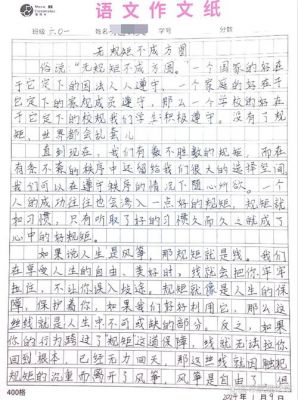 语文作文纸
班级 六.0一 姓名 学号 分数
无规矩不成方圆
俗说“无规矩不成方圆。”一个国家的好在
于它定下的国法人人遵守,一个家庭的好在
于它定下的家规成员遵守,那么一个学校的好在
于它定下的校规我们学生积极遵守。没有了规
矩,世界都会乱套儿
直到现在,我们有数不胜数的规矩,而在
有条不紊的秩序中还留给我们很大的选择空间
我们可以在遵守秩序的情况下随心所欲。一个
人的成功往往也会潜入一点好的规矩。规矩就
如习惯,只有听取了好的习惯久而久之就成了
心中的好规矩。
如果说人生是风筝,那规矩就是线。我们
在享受人生的自由、美好时,线就会把你牢牢
拉住,不让你误入歧途,规矩就像是人生的保
障,保护着你,如果我们好好利用它,那么这
丝线就是人生中不可或缺的部分。反之,如果
你的行为跨过了规矩这道保障,线就无法拉你
回到根本,已经无力回天,那这丝线就因触犯
规矩的沉重而离开了风筝,风筝是自由了,但
400格
2024年1月9日